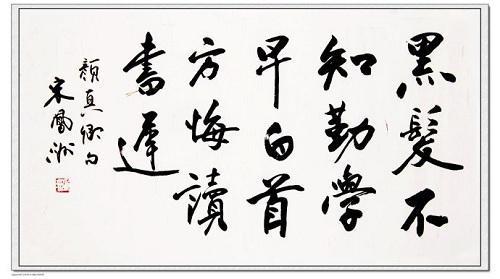 黑髮不
知勤學
早白首
方悔讀
書遲
顏真卿句
宋鳳洲